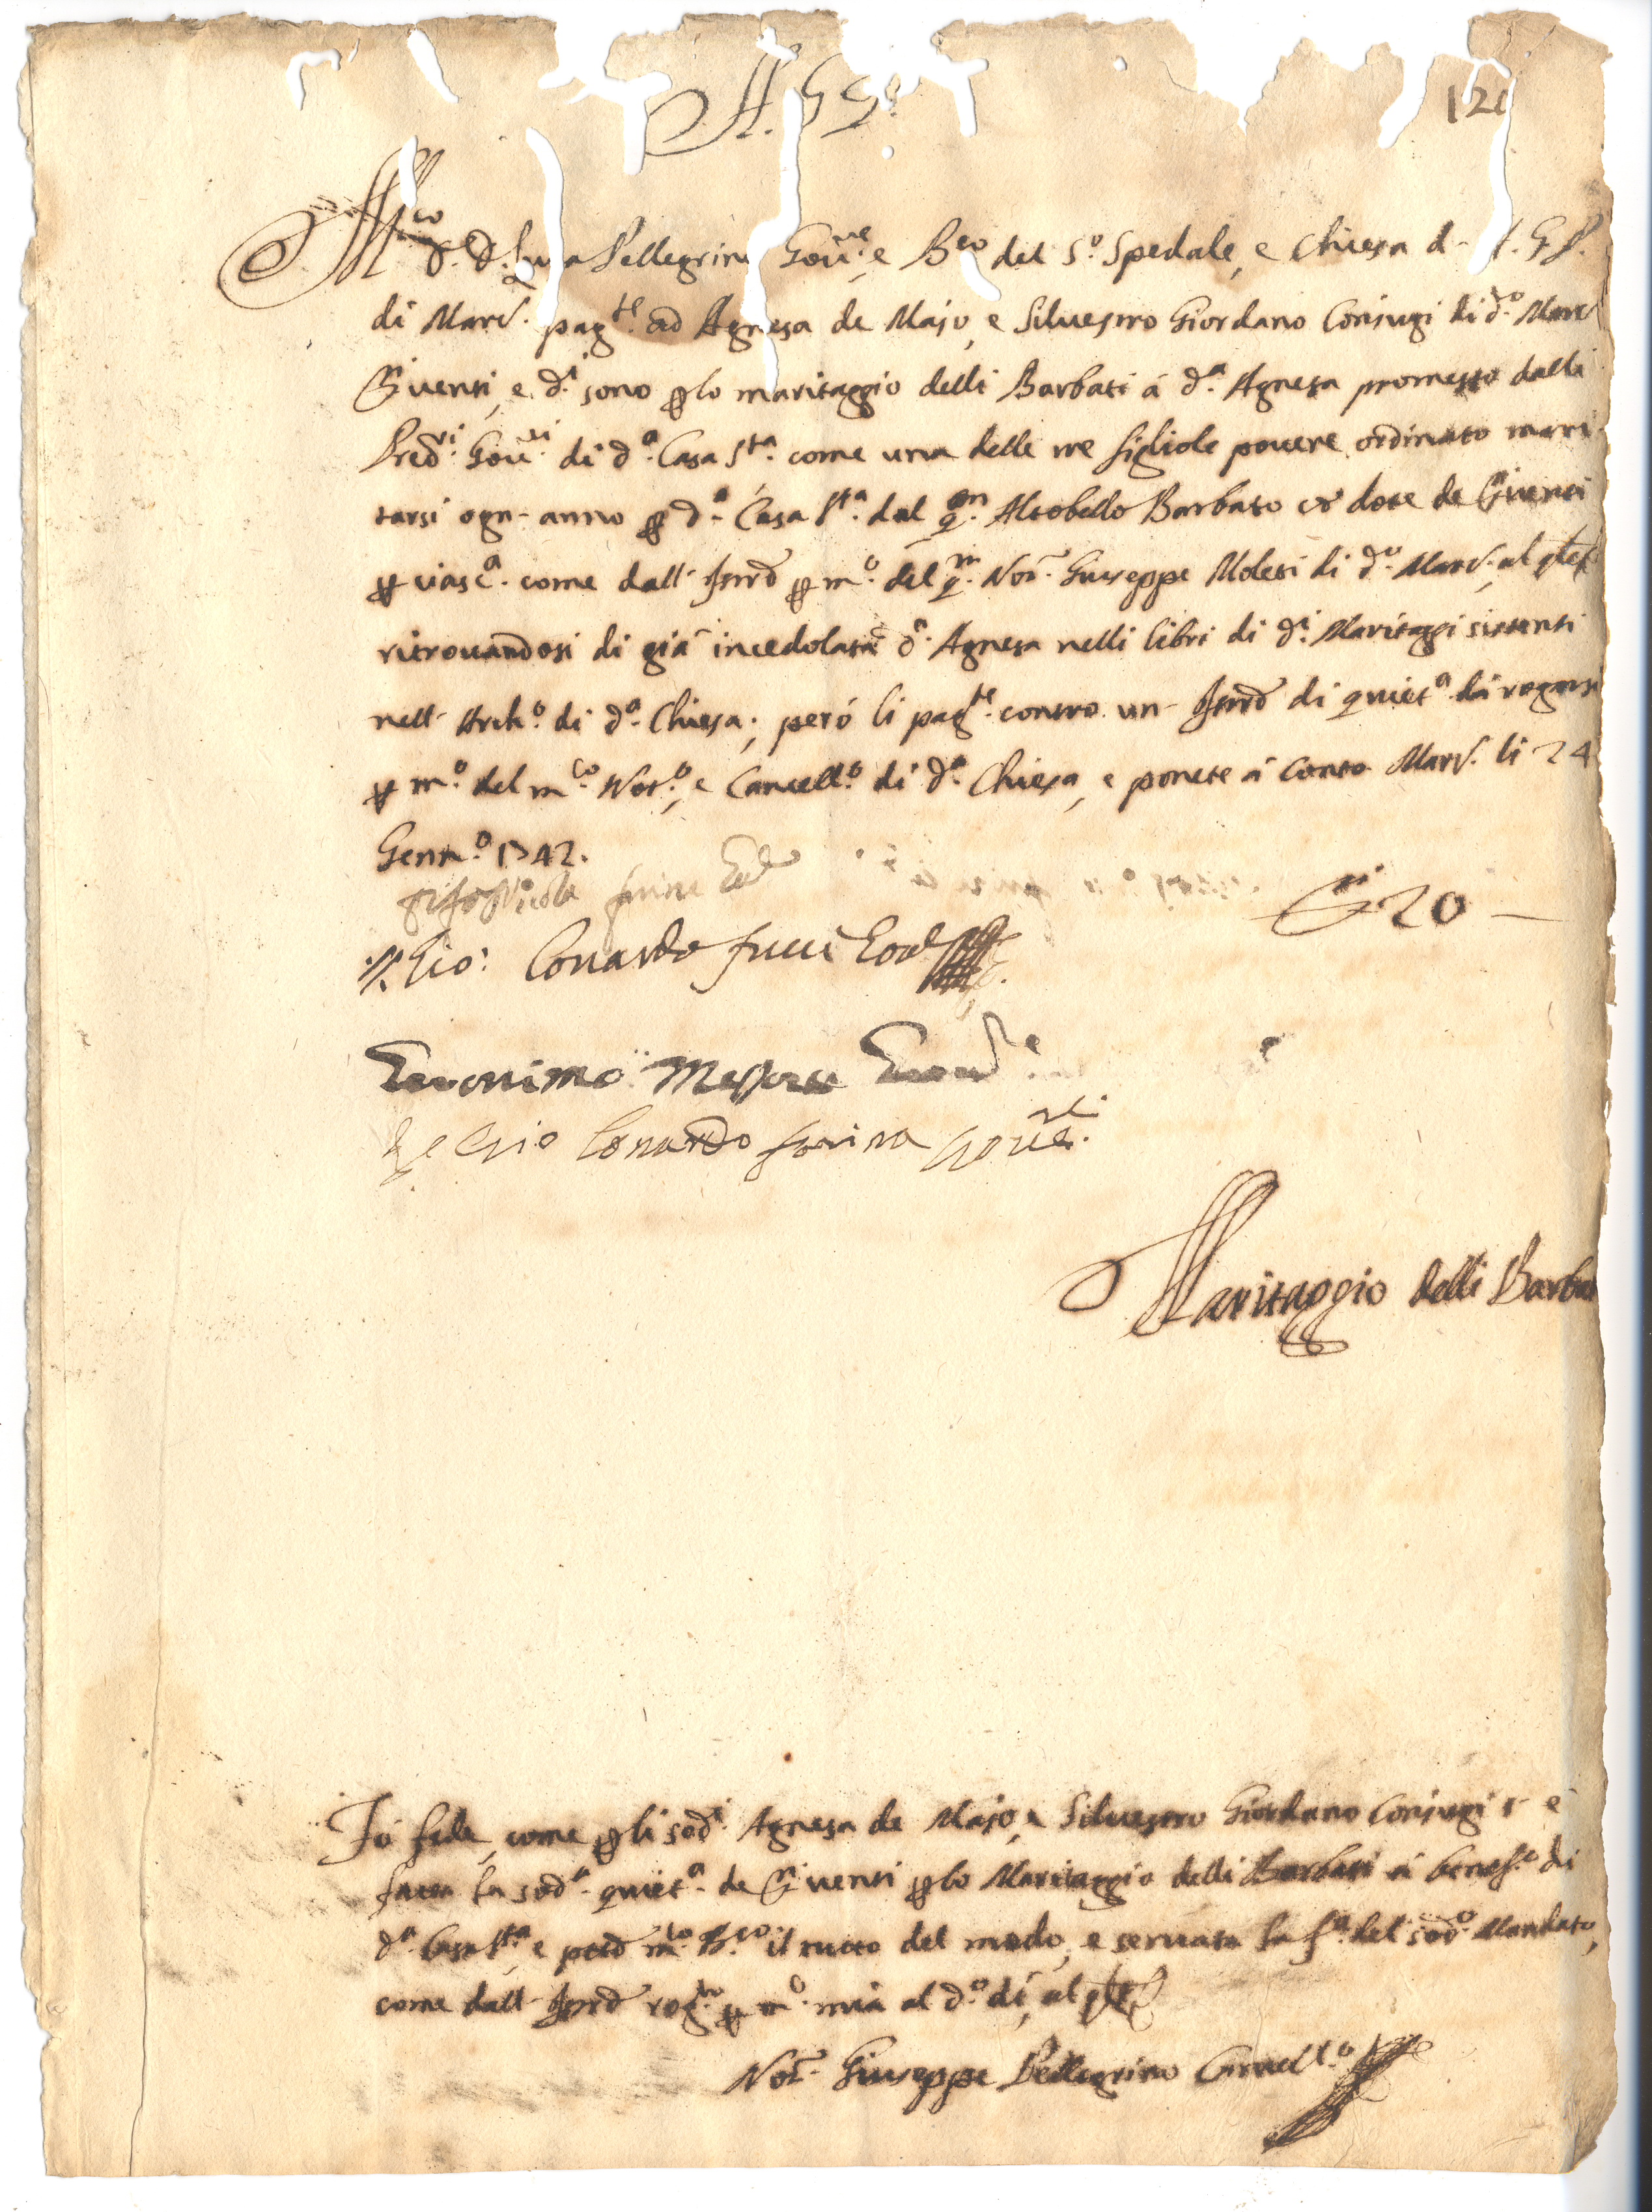 A. 55º
12
M.co Sr. D. Luca Pellegrino Gov.re, e B.ro del S.º Spedale, e Chiesa d- A. G. P.
di Marc.r pag.te ad Agnesa de Majo, e Silvestro Giordano Coniugi di d.º Marc
D.ti venti, e d.i sono p lo maritaggio delli Barbati á d.a Agnesa promesso dalli
Pred.ri Gov.ri di d.a Casa S.ta come una delle tre figliole povere ordinato mari
tarsi ogn- anno p d.a Casa S.ta dal q.m Altobello Barbato co dote de D.ti venti
p ciasc.a come dall- Istro p m.º del q.m Not. Giuseppe Moleti di d.º Marc.r al qle
ritrovandosi di giá incedolata d.a Agnesa nelli libri di d.i Maritaggi sistenti
nell- Arch.º di d.a Chiesa; peró li pag.te contro un- Istro di quiet.a dá rogarsi
p m.º del m.co Not.º, e Cancell.º di d.a Chiesa, e ponete á conto Marc.r li 24
Genn.º 1742.
Nicola
D.ti 20 —
Gio: Conardo fucci
Geronimo Messore
Gio Conardo farina Gov.re
Maritaggio delli Barba
Fó fede, come p li sod.i Agnesa de Majo, e Silvestro Giordano Coniugi s- é
fatta la sod.a quiet.a de D.ti venti p lo Maritaggio delli Barbati á benef.º di
d.a Casa S.ta, e pred m.co B.ro il tutto del modo, e servata la f.a del sod.º Mandato,
come dall- Istro rog.to p m.º mia al d.º dí, al qle
Not. Giuseppe Pellegrino Cancell.º